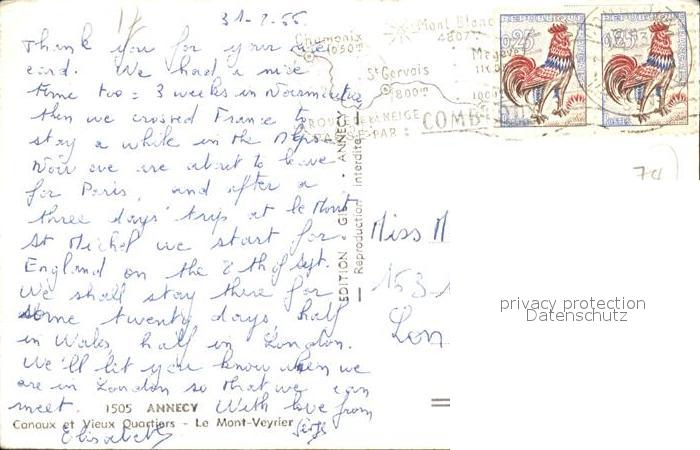 31-8-66.
Thank you for your nice
card. We had a nice
time too: 3 weeks in Noirmoutier,
then we crossed France to
stay a while in the Alps.
Now we are about to leave
for Paris, and after a
three days' trip at le Mont
St Michel we start for
England on the 8th of Sept.
We shall stay there for
some twenty days, half
in Wales, half in London.
We'll let you know when we
are in London so that we can
meet. With love from
Elisabeth Serge
1505 ANNECY
Canaux et Vieux Quartiers - Le Mont-Veyrier
EDITION GIL ANNECY
Reproduction interdite
Chamonix
1050m
Mont Blanc
4807m
Megève
St Gervais
800m
ROUTE DE NEIGE
PASSE PAR :
COMB
0,25
Miss M
153-
Lon
74
privacy protection
Datenschutz